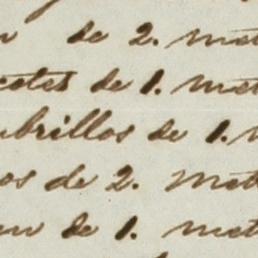 de 2. met
cotes de 1. met
brillos de 1.
os de 2. met
de 1. met